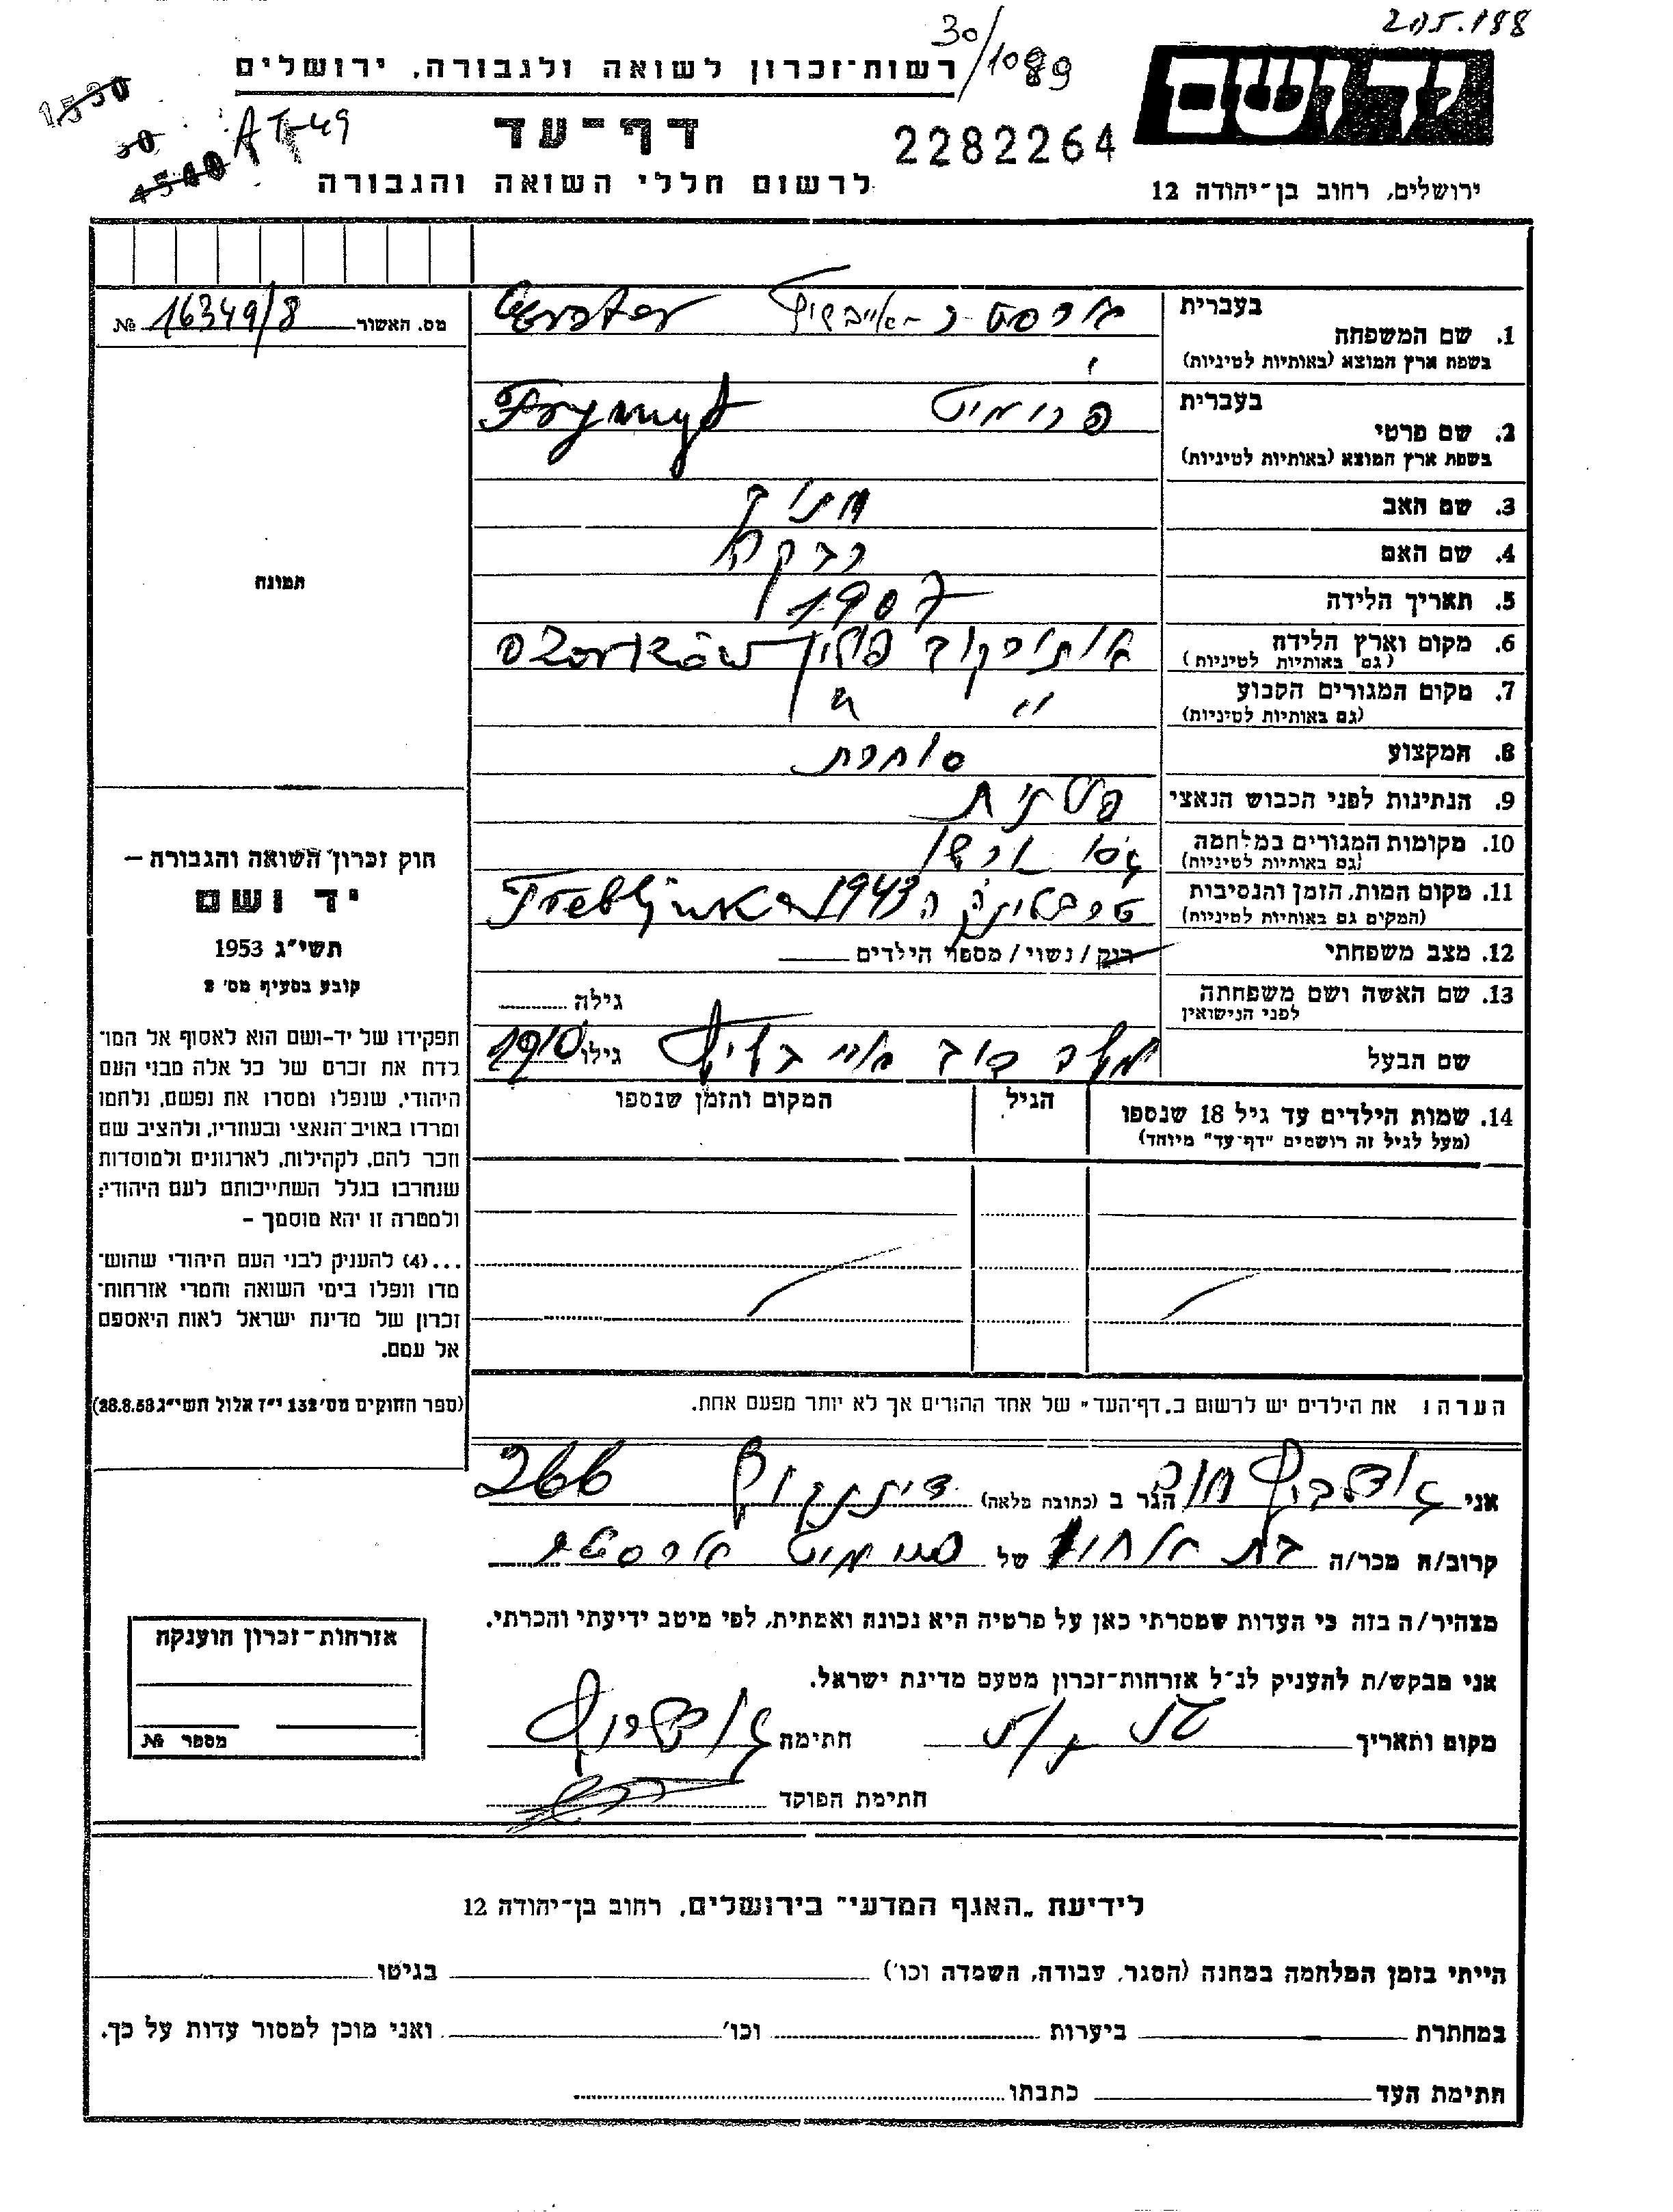 205.188
30/1089
רשות־זכרון לשואה ולגבורה, ירושלים
1530
30
4500
AT-49
דף־עד
2282264
ידושם
לרשום חללי השואה והגבורה
ירושלים, רחוב בן־יהודה 12
מס. האשור 16349/8 №
תמונה
חוק זכרון השואה והגבורה –
יד ושם
תשי״ג 1953
קובע בסעיף מס׳ 2
תפקידו של יד-ושם הוא לאסוף אל המו־
לדת את זכרם של כל אלה מבני העם
היהודי, שנפלו ומסרו את נפשם, נלחמו
ומרדו באויב הנאצי ובעוזריו, ולהציב שם
וזכר להם, לקהילות, לארגונים ולמוסדות
שנחרבו בגלל השתייכותם לעם היהודי;
ולמטרה זו יהא מוסמך –
...(4) להעניק לבני העם היהודי שהוש־
מדו ונפלו בימי השואה והמרי אזרחות־
זכרון של מדינת ישראל לאות היאספם
אל עמם.
(ספר החוקים מס׳ 132 י״ז אלול תשי״ג 28.8.53)
בעברית
1. שם המשפחה
בשפת ארץ המוצא (באותיות לטיניות)
בעברית
2. שם פרטי פרימיט Frymyt
בשפת ארץ המוצא (באותיות לטיניות)
3. שם האב חנוך
4. שם האם רבקה
5. תאריך הלידה 1907
6. מקום וארץ הלידה פולין
(גם באותיות לטיניות)
7. מקום המגורים הקבוע ״ ״
(גם באותיות לטיניות)
8. המקצוע סוחרת
9. הנתינות לפני הכבוש הנאצי פולנית
10. מקומות המגורים במלחמה גטו ורשו
(גם באותיות לטיניות)
11. מקום המות, הזמן והנסיבות טרבלינקה 1943 Trebljinka
(המקום גם באותיות לטיניות)
12. מצב משפחתי רוק / נשוי / מספר הילדים
13. שם האשה ושם משפחתה גילה
לפני הנישואין
שם הבעל גילו 1910
14. שמות הילדים עד גיל 18 שנספו הגיל המקום והזמן שנספו
(מעל לגיל זה רושמים ״דף־עד״ מיוחד)
הערה: את הילדים יש לרשום ב„דף־העד״ של אחד ההורים אך לא יותר מפעם אחת.
אני הגר ב (כתובת מלאה) דיזנגוף 266
קרוב/ה מכר/ה בת אחות של
מצהיר/ה בזה כי העדות שמסרתי כאן על פרטיה היא נכונה ואמתית, לפי מיטב ידיעתי והכרתי.
אני מבקש/ת להעניק לנ״ל אזרחות־זכרון מטעם מדינת ישראל.
מקום ותאריך חתימה
חתימת הפוקד
אזרחות־זכרון הוענקה
מספר №
לידיעת „האגף המדעי״ בירושלים, רחוב בן־יהודה 12
הייתי בזמן המלחמה במחנה (הסגר, עבודה, השמדה וכו׳) בגיטו
במחתרת ביערות וכו׳ ואני מוכן למסור עדות על כך.
חתימת העד כתבתו